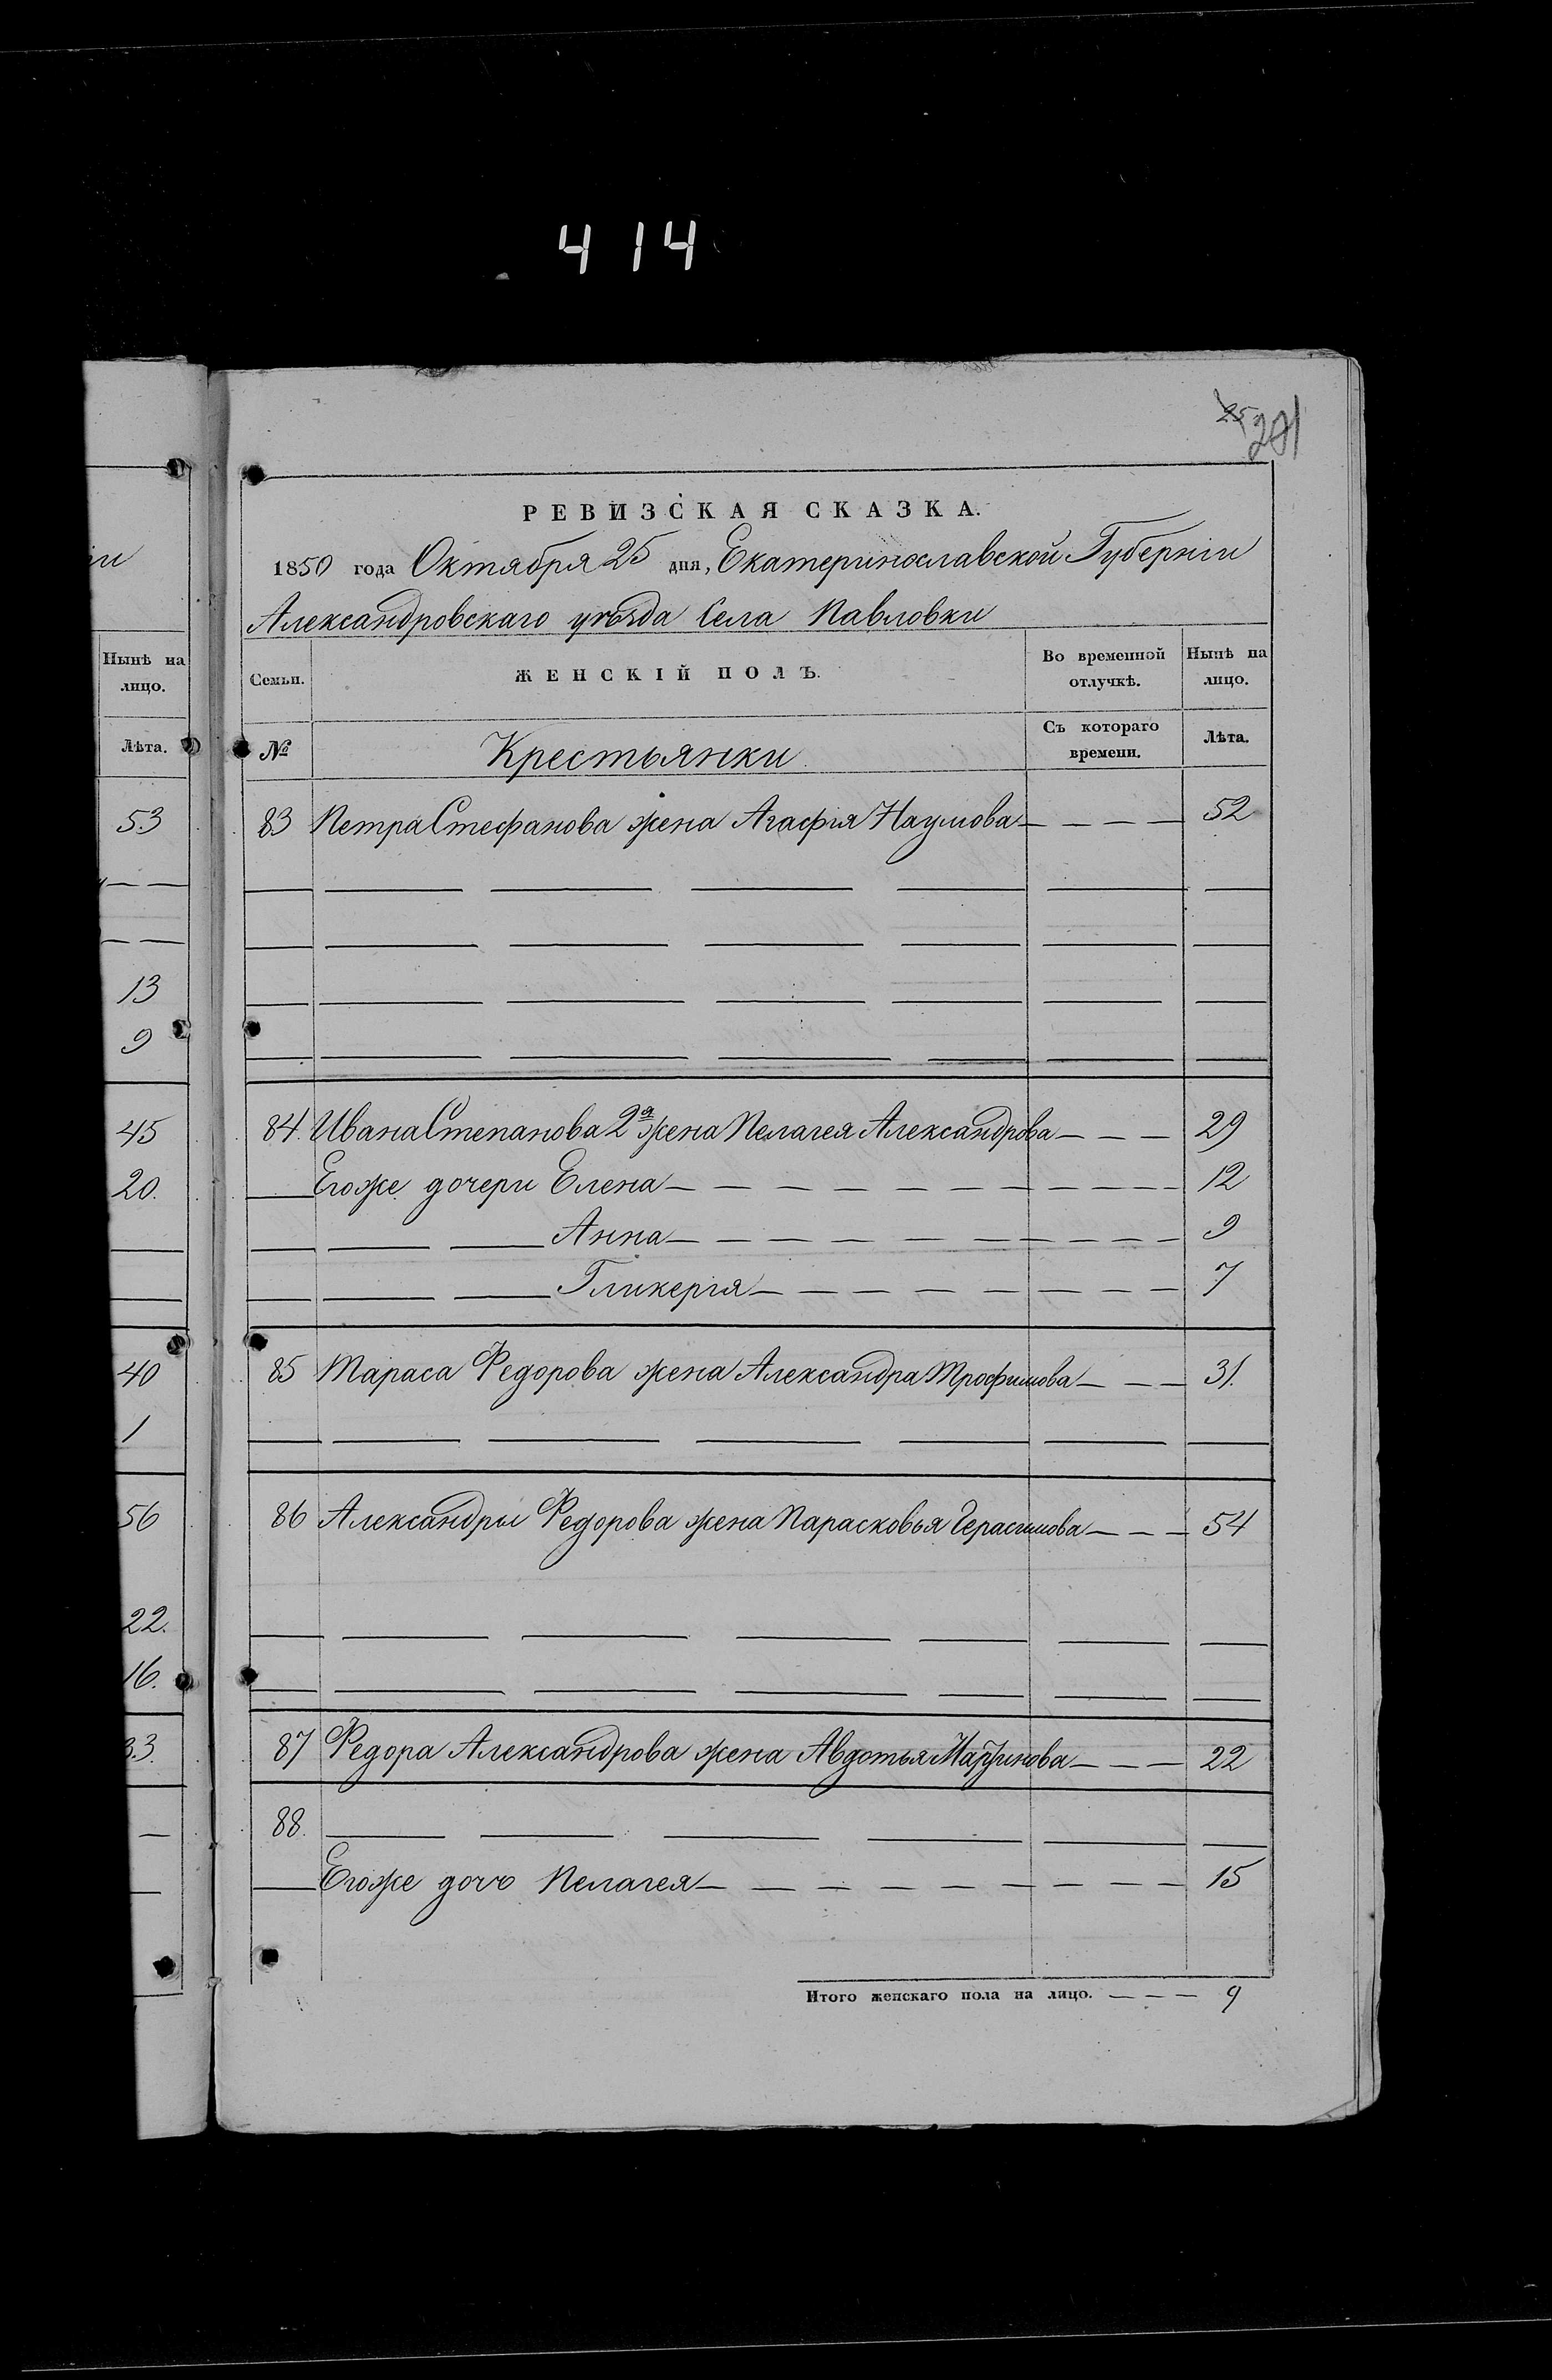 414
25
281
РЕВИЗСКАЯ СКАЗКА.
1850 года Октября 25 дня, Екатеринославской Губерніи
Александровскаго уѣзда Села Павловки
іи
Нынѣ на лицо.
Лѣта.
53
13
9
45
20.
40
1
56
22.
16.
33.
Семьи.
ЖЕНСКІЙ ПОЛЪ.
Во временной отлучкѣ.
Нынѣ на лицо.
№
Крестьянки
Съ котораго времени.
Лѣта.
83 Петра Стефанова жена Агафія Наумова — — — — 52
84. Ивана Степанова 2я жена Пелагея Александрова — — — 29
Егоже дочери Елена — — — — — — — — — — — 12
Анна — — — — — — — — — — — 9
Гликерія — — — — — — — — — 7
85 Тараса Федорова жена Александра Трофимова — — — 31.
86 Александры Федорова жена Парасковья Герасимова — — — 54
87 Федора Александрова жена Авдотья Мартинова — — — 22
88.
Егоже дочь Пелагея — — — — — — — — — — 15
Итого женскаго пола на лицо. — — — 9